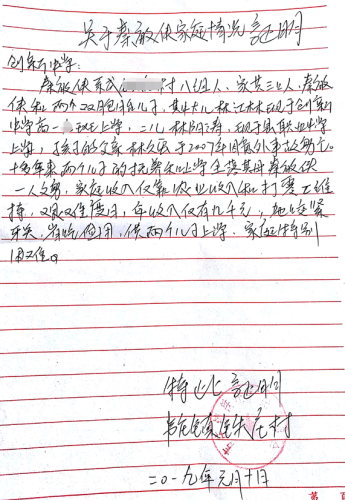 关于秦敏侠家庭情况证明
创新中学:
秦敏侠系我 村八组人、家共三口人,秦敏
侠和两个双胞胎儿子,其中大儿林江林现于创新
中学高一 班上学,二儿林 涛,现于县职业中学
上学,孩子的父亲林 于2007年 月意外事故身亡
十多年来两个儿子的抚养和上学全落其母秦敏侠
一人身上,家庭收入仅靠农业收入和打零工维
持,艰难度日,年收入仅有九千元,她咬紧
牙关,省吃俭用,供两个儿子上学,家庭特别
困难。
特此证明
镇 庄村
二0一九年元月十日